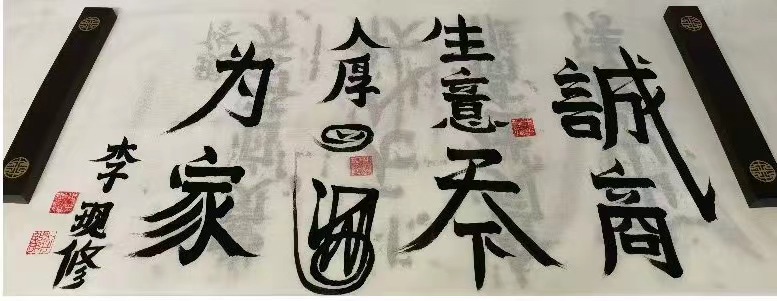 誠商
生意天下
人厚四海
为家
李 修